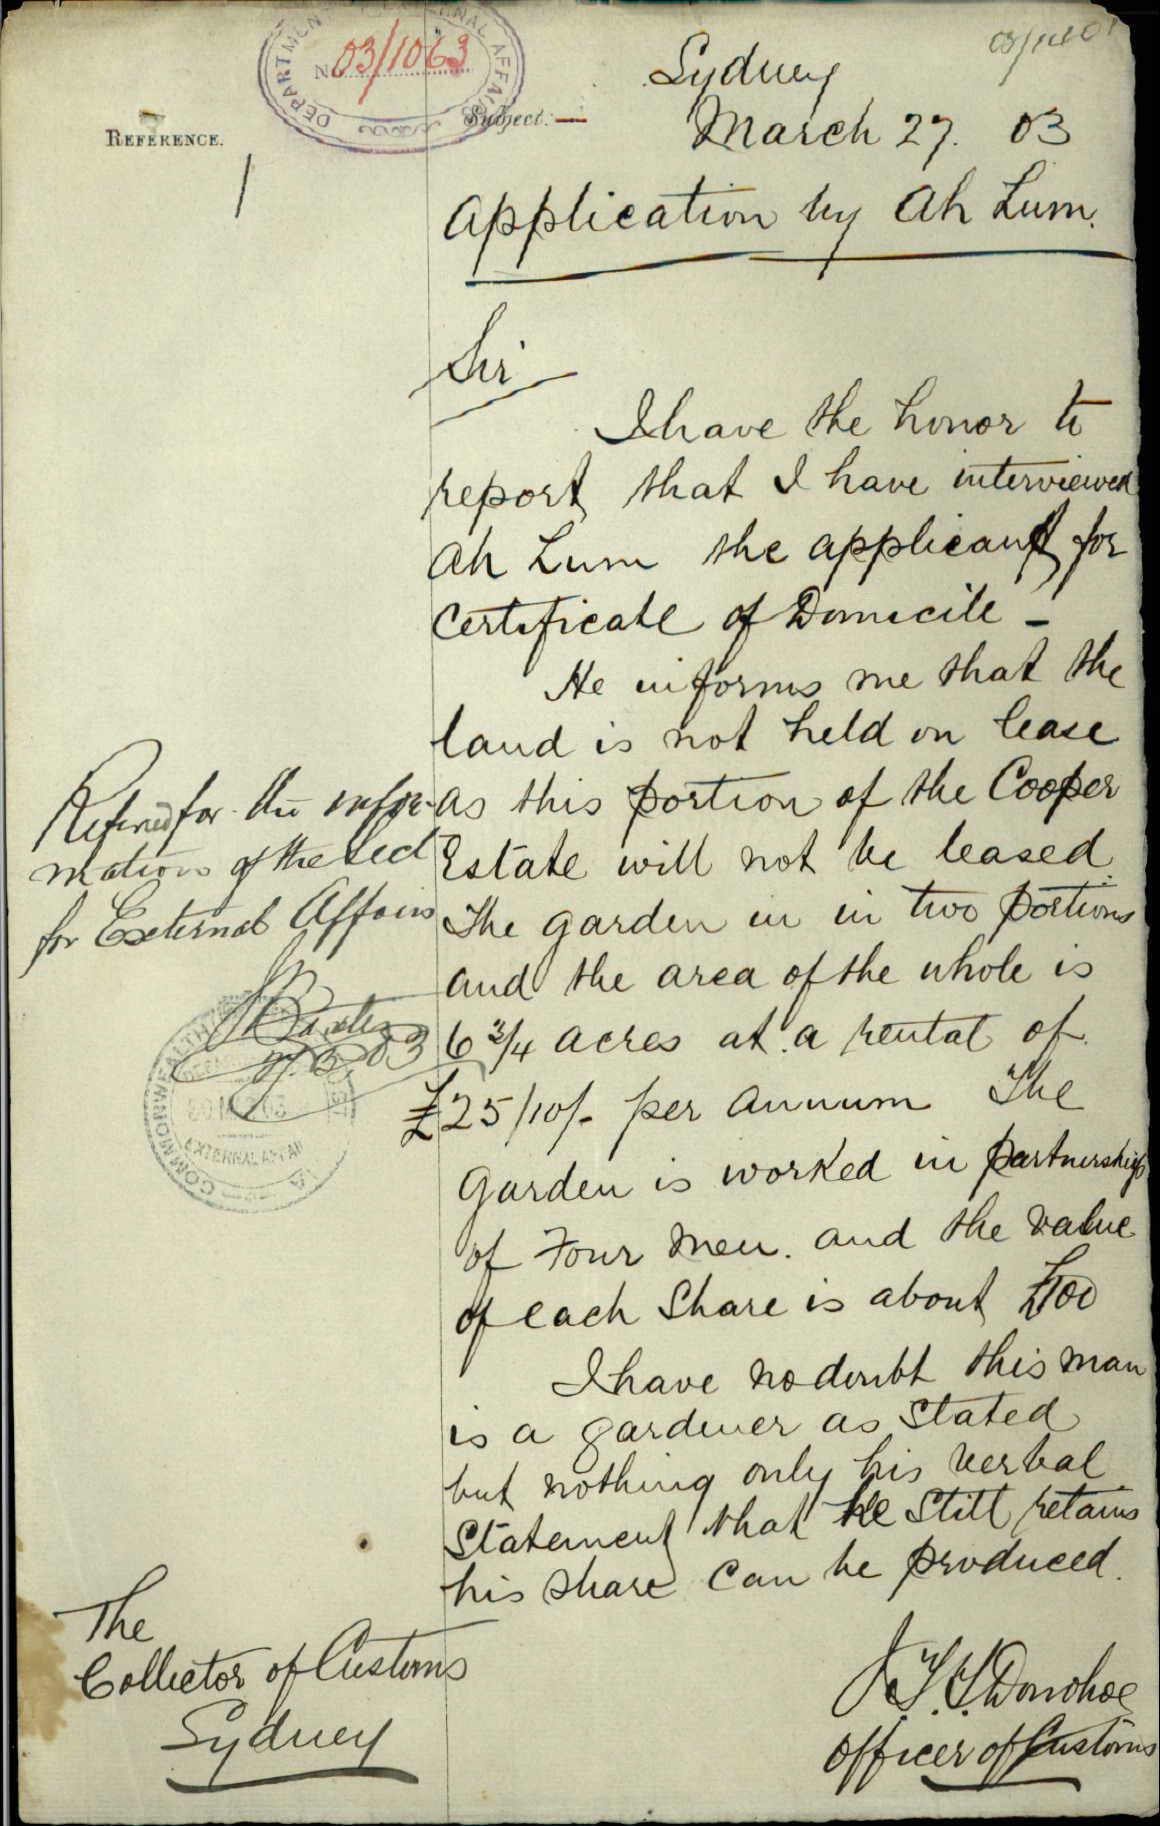 DEPARTMENT OF EXTERNAL AFFAIRS
No 03/1063
REFERENCE.
Subject:—
1
Sydney
March 27. 03
Application by Ah Lum.
Sir
I have the honor to
report that I have interviewed
Ah Lum the applicant for
Certificate of Domicile –
He informs me that the
land is not held on lease
as this portion of the Cooper
Estate will not be leased.
The garden in in two portions
and the area of the whole is
6 3/4 acres at a rental of
£25/10/- per annum The
Garden is worked in partnership
of Four men. and the value
of each Share is about £100
I have no doubt this man
is a gardener as Stated
but nothing only his verbal
Statement that He Still retains
his share can be produced.
Donohoe
Officer of Customs
The
Collector of Customs
Sydney
Referred for the infor-
mation of the Sec
for External Affairs
Baxter
03
COMMONWEALTH
EXTERNAL AFFAI